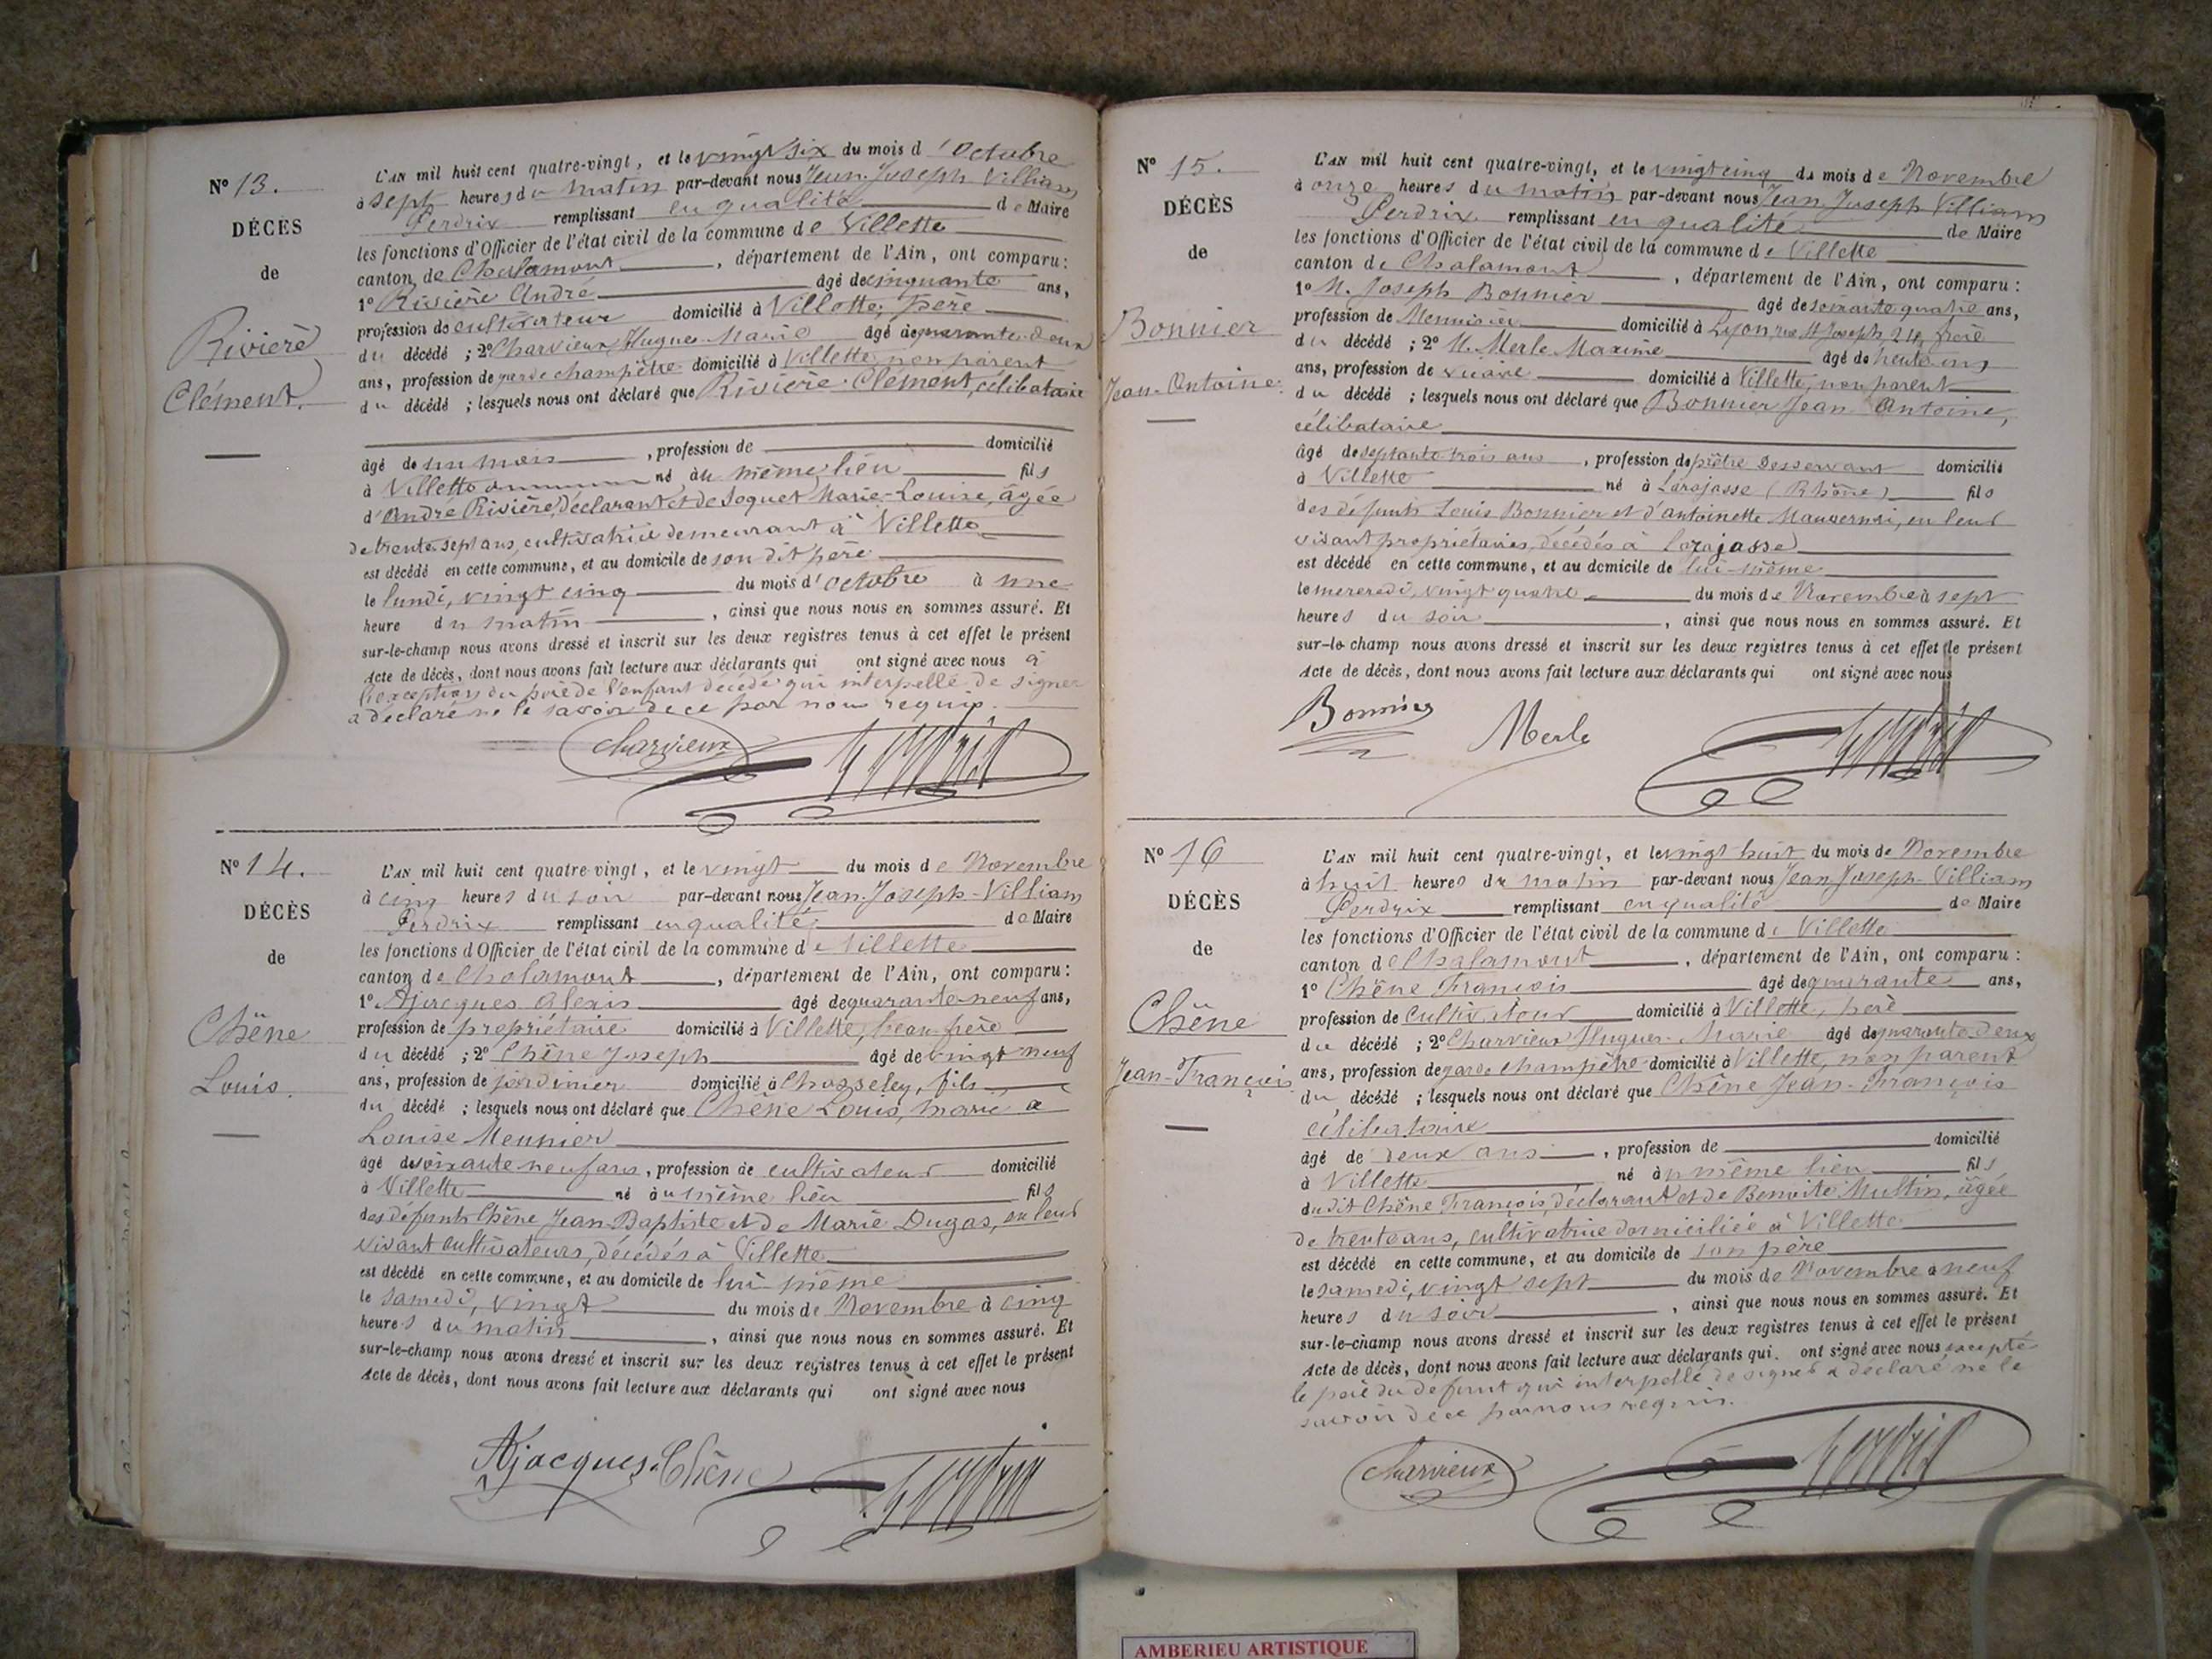 Nº 13.
DÉCÈS
de
Rivière
Clément.
L'AN mil huit cent quatre-vingt, et le vingt six du mois d'Octobre
à sept heures du matin par-devant nous Jean-Joseph Villiam
Perdrix remplissant en qualité de Maire
les fonctions d'Officier de l'état civil de la commune de Villette
canton de Chalamont, département de l'Ain, ont comparu:
1º Rivière André âgé de cinquante ans,
profession de cultivateur domicilié à Villette, père
du décédé ; 2º Charvieux Hugues Marie âgé de quarante-deux
ans, profession de garde champêtre domicilié à Villette non parent
du décédé ; lesquels nous ont déclaré que Rivière Clément, célibataire
âgé de un mois, profession de domicilié
à Villette né au même lieu fils
d'André Rivière, déclarant et de Joquet Marie-Louise, âgée
de trente sept ans, cultivatrice demeurant à Villette
est décédé en cette commune, et au domicile de son dit père
le lundi, vingt cinq du mois d'octobre à une
heure du matin, ainsi que nous nous en sommes assuré. Et
sur-le-champ nous avons dressé et inscrit sur les deux registres tenus à cet effet le présent
Acte de décès, dont nous avons fait lecture aux déclarants qui ont signé avec nous à
l'exception du père de l'enfant décédé qui interpellé de signer
a déclaré ne le savoir de ce par nous requis.
Charvieux Perdrix
Nº 14.
DÉCÈS
de
Chêne
Louis.
L'AN mil huit cent quatre-vingt, et le vingt du mois de Novembre
à cinq heures du soir par-devant nous Jean-Joseph-Villiam
Perdrix remplissant en qualité de Maire
les fonctions d'Officier de l'état civil de la commune de Villette
canton de Chalamont, département de l'Ain, ont comparu:
1º Ajacques Alexis âgé de quarante-neuf ans,
profession de propriétaire domicilié à Villette, beau-frère
du décédé ; 2º Chêne Joseph âgé de vingt neuf
ans, profession de jardinier domicilié à Chasseley, fils
du décédé ; lesquels nous ont déclaré que Chêne Louis, marié à
Louise Meunier
âgé de soixante neuf ans, profession de cultivateur domicilié
à Villette né au même lieu fils
des défunts Chêne Jean-Baptiste et de Marie Dugas, en leur
vivant cultivateurs, décédés à Villette
est décédé en cette commune, et au domicile de lui même
le samedi, vingt du mois de Novembre à cinq
heures du matin, ainsi que nous nous en sommes assuré. Et
sur-le-champ nous avons dressé et inscrit sur les deux registres tenus à cet effet le présent
Acte de décès, dont nous avons fait lecture aux déclarants qui ont signé avec nous
Ajacques Chêne Perdrix
Nº 15.
DÉCÈS
de
Bonnier
Jean-Antoine
L'AN mil huit cent quatre-vingt, et le vingt cinq du mois de Novembre
à onze heures du matin par-devant nous Jean-Joseph Villiam
Perdrix remplissant en qualité de Maire
les fonctions d'Officier de l'état civil de la commune de Villette
canton de Chalamont, département de l'Ain, ont comparu:
1º M. Joseph Bonnier âgé de soixante quatre ans,
profession de Menuisier domicilié à Lyon, rue St Joseph 24, frère
du décédé ; 2º M. Merle Maxime âgé de trente cinq
ans, profession de vicaire domicilié à Villette, non parent
du décédé ; lesquels nous ont déclaré que Bonnier Jean Antoine,
célibataire
âgé de septante trois ans, profession de prêtre desservant domicilié
à Villette né à Larajasse (Rhône) fils
des défunts Louis Bonnier et d'antoinette, en leur
vivant propriétaires, décédés à Larajasse
est décédé en cette commune, et au domicile de lui-même
le mercredi, vingt quatre du mois de Novembre à sept
heures du soir, ainsi que nous nous en sommes assuré. Et
sur-le-champ nous avons dressé et inscrit sur les deux registres tenus à cet effet le présent
Acte de décès, dont nous avons fait lecture aux déclarants qui ont signé avec nous
Bonnier Merle Perdrix
Nº 16
DÉCÈS
de
Chêne
Jean-François
L'AN mil huit cent quatre-vingt, et le vingt huit du mois de Novembre
à huit heures du matin par-devant nous Jean Joseph-Villiam
Perdrix remplissant en qualité de Maire
les fonctions d'Officier de l'état civil de la commune de Villette
canton de Chalamont, département de l'Ain, ont comparu:
1º Chêne François âgé de quarante ans,
profession de Cultivateur domicilié à Villette, père
du décédé ; 2º Charvieux Hugues-Marie âgé de quarante-deux
ans, profession de garde champêtre domicilié à Villette, non parent
du décédé ; lesquels nous ont déclaré que Chêne Jean-François
célibataire
âgé de deux ans, profession de domicilié
à Villette né au même lieu fils
du dit Chêne François, déclarant et de Benoite Multin, âgée
de trente ans, cultivatrice domiciliée à Villette
est décédé en cette commune, et au domicile de son père
le samedi, vingt sept du mois de Novembre à neuf
heures du soir, ainsi que nous nous en sommes assuré. Et
sur-le-champ nous avons dressé et inscrit sur les deux registres tenus à cet effet le présent
Acte de décès, dont nous avons fait lecture aux déclarants qui ont signé avec nous excepté
le père du défunt qui interpellé de signer a déclaré ne le
savoir de ce par nous requis.
Charvieux Perdrix
AMBERIEU ARTISTIQUE